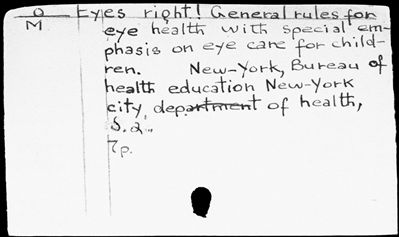 O Eyes right! General rules for
M eye health with special em-
phasis on eye care for child-
ren. New-York, Bureau of
health education New-York
city, department of health,
S.a..
7p.